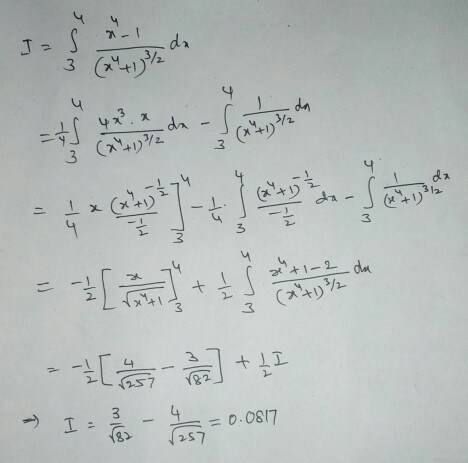 I = ∫₃⁴ (x⁴-1)/(x⁴+1)^(3/2) dx
= 1/4 ∫₃⁴ (4x³·x)/(x⁴+1)^(3/2) dx - ∫₃⁴ 1/(x⁴+1)^(3/2) dx
= 1/4 x (x⁴+1)^(-1/2)/(-1/2) ]₃⁴ - 1/4 · ∫₃⁴ (x⁴+1)^(-1/2)/(-1/2) dx - ∫₃⁴ 1/(x⁴+1)^(3/2) dx
= -1/2 [ x/√(x⁴+1) ]₃⁴ + 1/2 ∫₃⁴ (x⁴+1-2)/(x⁴+1)^(3/2) dx
= -1/2 [ 4/√257 - 3/√82 ] + 1/2 I
⇒ I = 3/√82 - 4/√257 = 0.0817